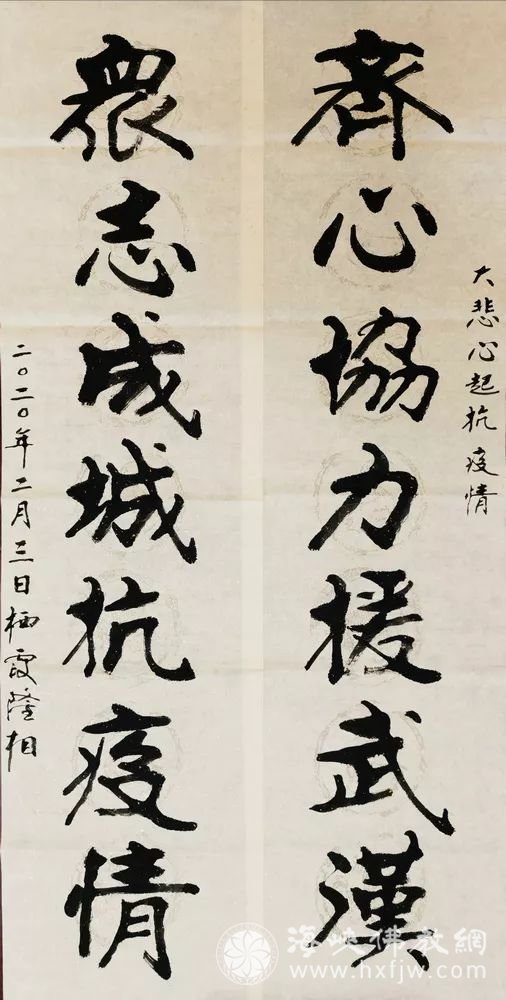 大悲心起抗疫情
齊心協力援武漢
眾志成城抗疫情
二〇二〇年二月三日栖霞隆相
海峡佛教網
www.hxfjw.com